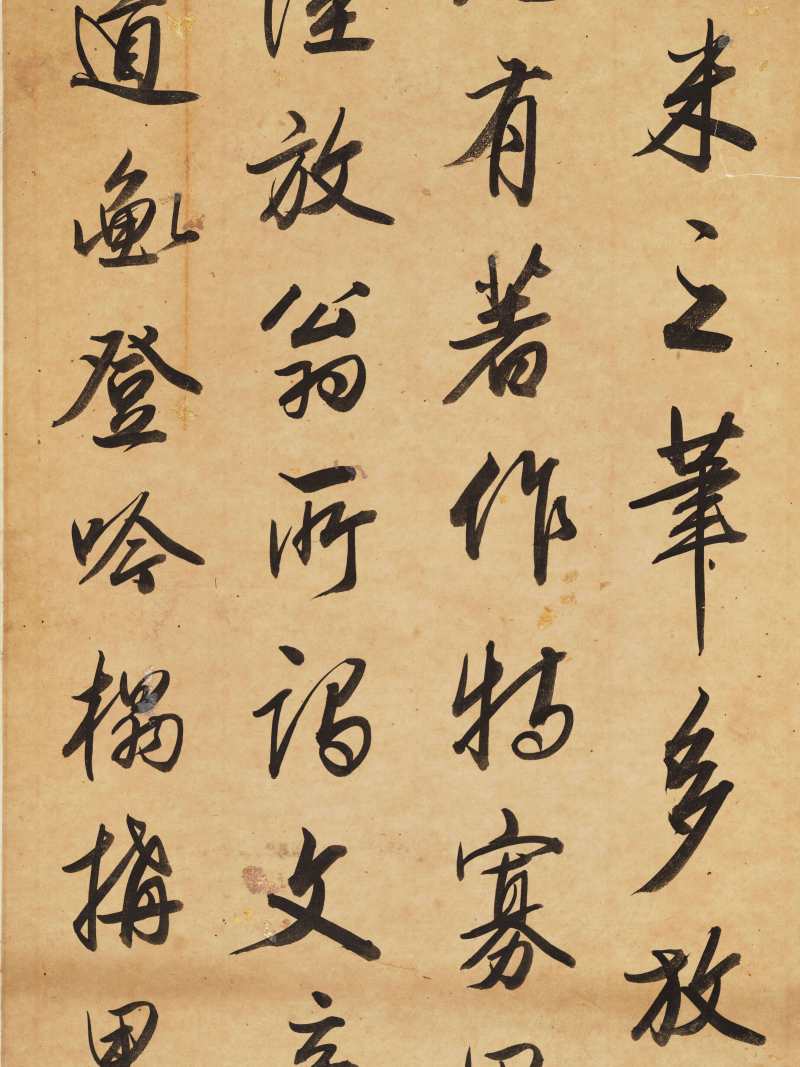 来之筆多放
有著作特寡
放翁所謂文
道登吟榻構